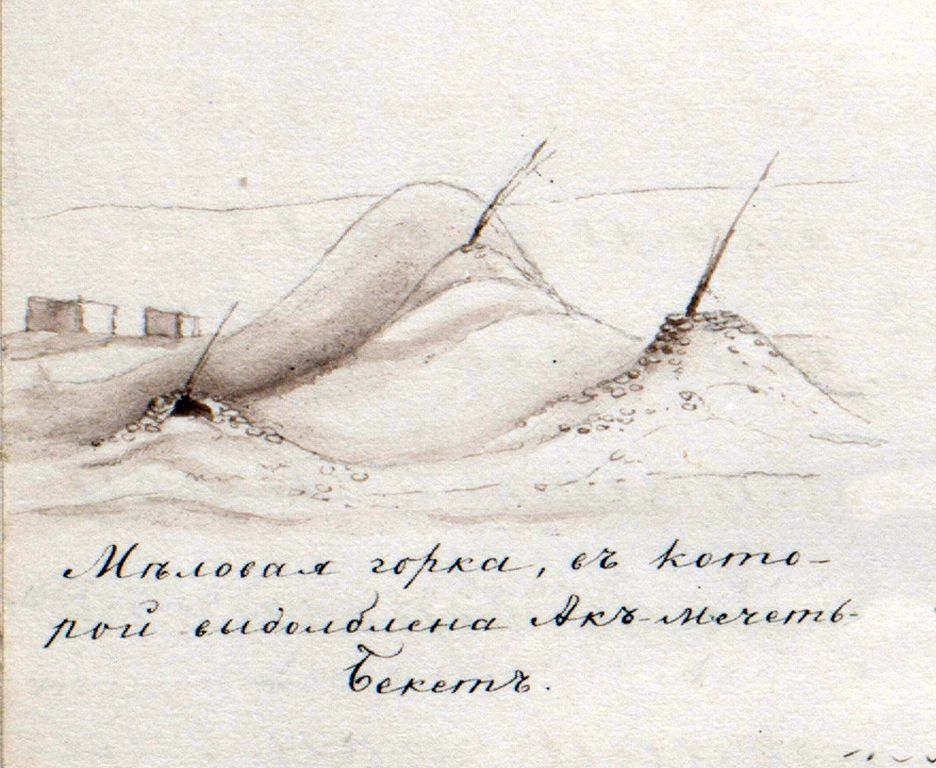 Мѣловая горка, въ кото-
рой выдолблена Акъ-мечеть-
Бекетъ.